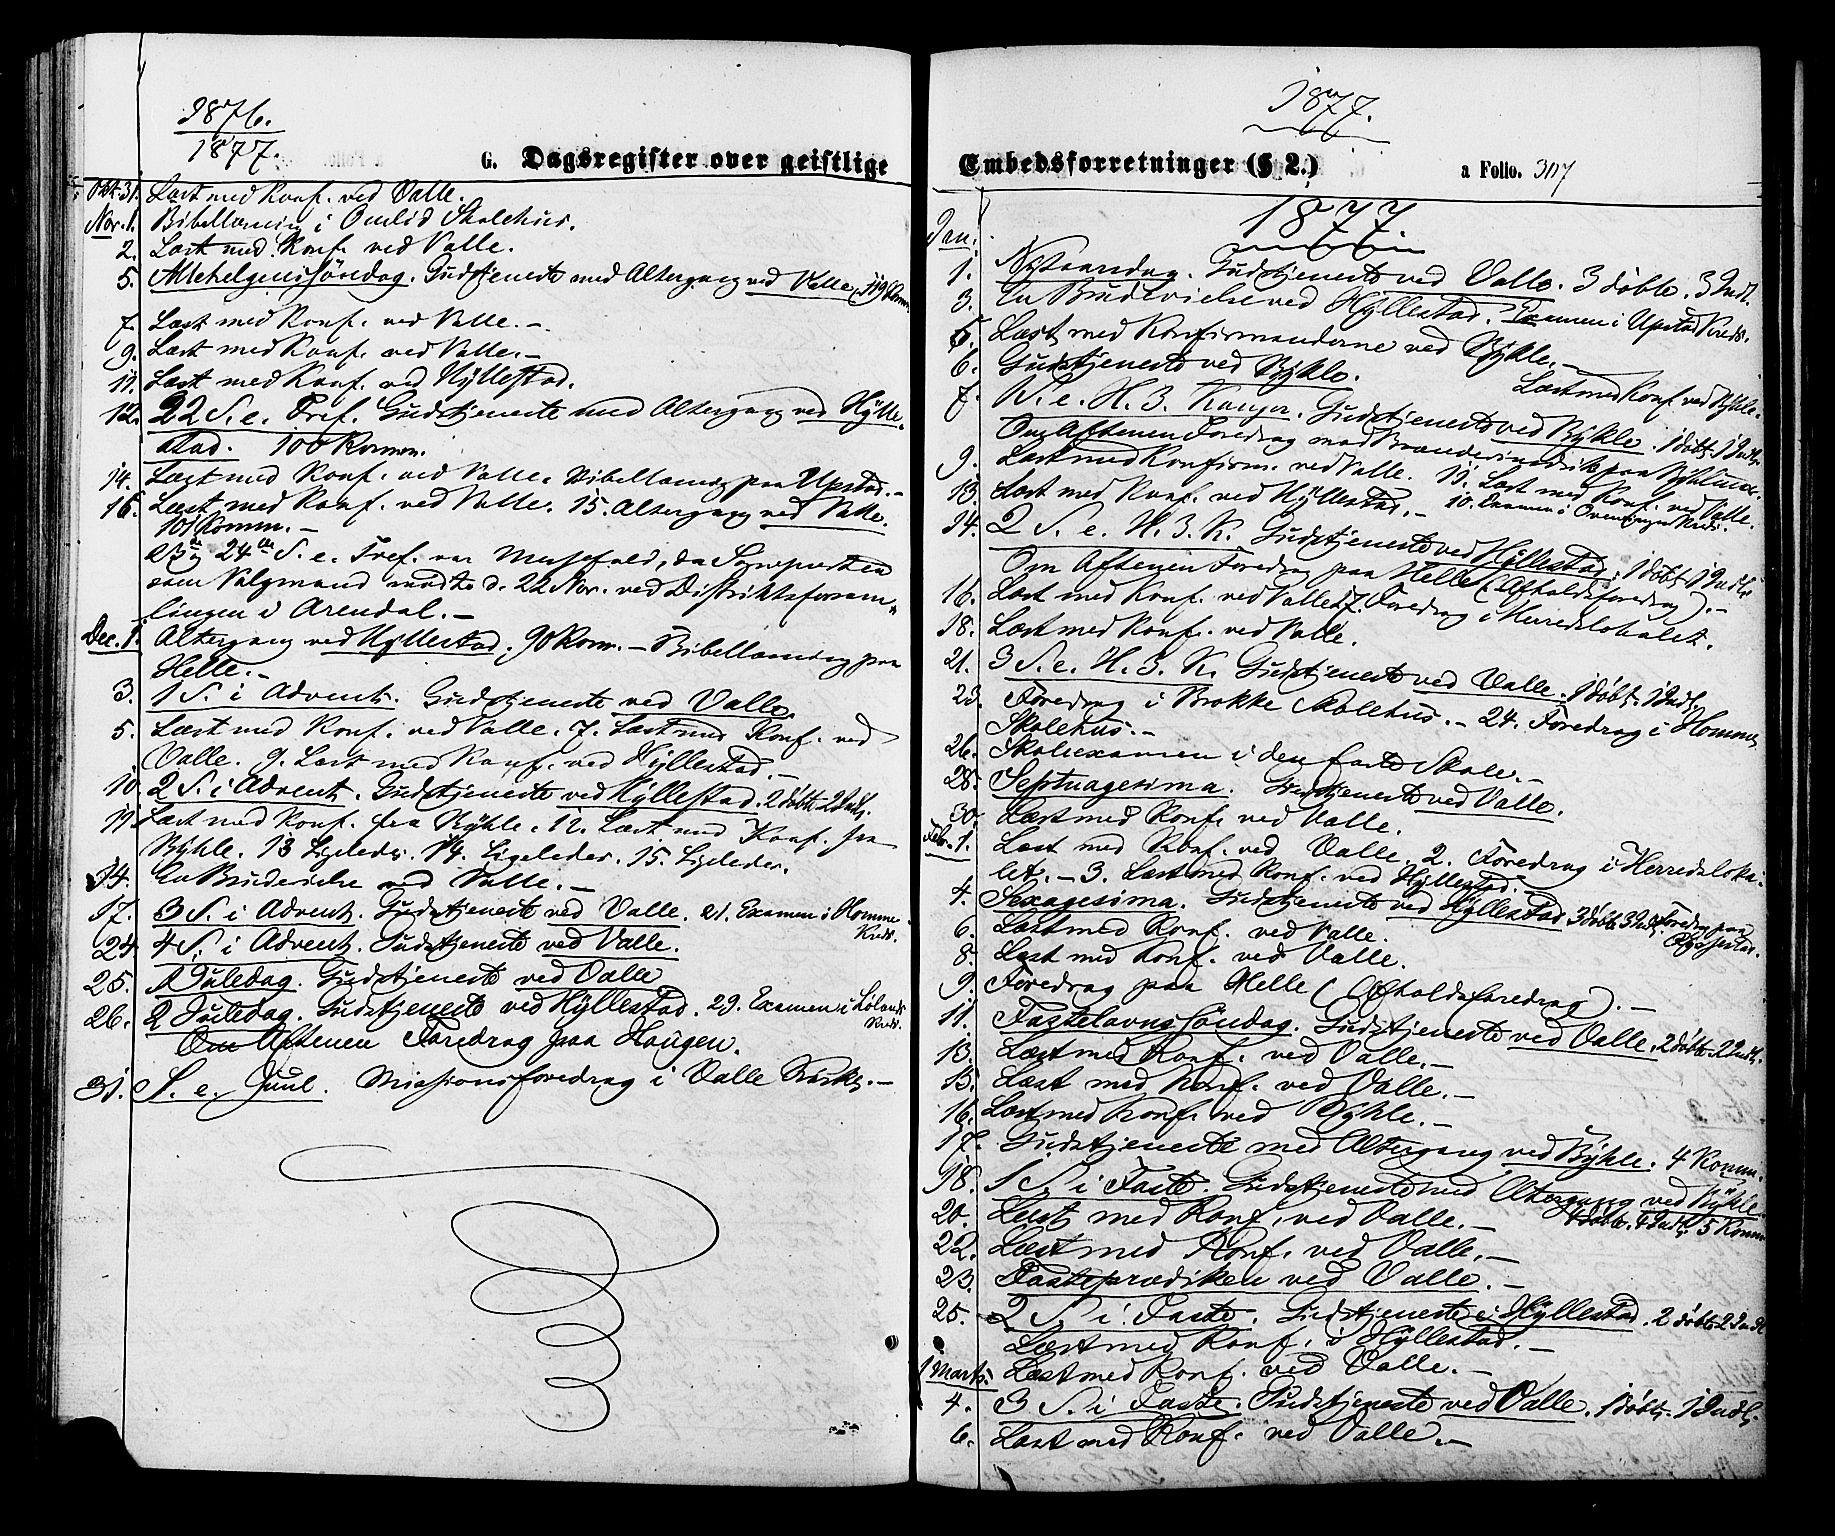 1876.
1877.
G. Dagsregister over geistlige
Okt. 31. Læst med Konf. ved Valle.
Nov. 1. Bibellæsning i Omlid Skolehus.
2. Læst med Konf. ved Valle.
5. Allehelgensöndag. Gudstjeneste med Altergang ved Valle, 119 Komm.
7. Læst med Konf. ved Valle. –
9. Læst med Konf. ved Valle. –
11. Læst med Konf. ved Hyllestad.
12. 22 S. e. Tref. Gudstjeneste med Altergang ved Hylle-
stad. 100 Komm.
14. Læst med Konf. ved Valle. Bibellæsning paa Upstad. –
16. Læst med Konf. ved Valle. 15. Altergang ved Valle.
101 Komm. –
23de og 24de S. e. Tref. var Messefald, da Sognepresten
som Valgmand mødte d. 22 Nov. ved Distriktsforsam-
lingen i Arendal. –
Dec. 1. Altergang ved Hyllestad. 90 Kom. – Bibellæsning paa
Helle. –
3. 1 S. i Advent. Gudstjeneste ved Valle.
5. Læst med Konf. ved Valle. 7. Læst med Konf. ved
Valle. 9. Læst med Konf. ved Hyllestad. –
10. 2 S. i Advent. Gudstjeneste ved Hyllestad. 2 döbte 2 Indl.
11. Læst med Konf. fra Bykle. 12. Læst med Konf. fra
Bykle. 13 Ligeledes. 14. Ligeledes. 15. Ligeledes.
14. En Brudevielse ved Valle. –
17. 3 S. i Advent. Gudstjeneste ved Valle. 21. Examen i Homme
Kreds.
24. 4 S. i Advent. Gudstjeneste ved Valle.
25. 1 Juledag. Gudstjeneste ved Valle
26. 2 Juledag. Gudstjeneste ved Hyllestad. 29. Examen i Lölands
Kreds.
Om Aftenen Foredrag paa Haugen.
31. S. e. Juul. Missionsforedrag i Valle Kirke. –
1877.
Embedsforretninger (§ 2.)
a Folio. 307
1877.
Jan.
1. Nytaarsdag. Gudstjeneste ved Valle. 3 döbte. 3 Indl.
3. En Brudevielse ved Hyllestad. Examen i Upstad Kreds.
5. Læst med Konfirmanderne ved Bykle. –
6. Gudstjeneste ved Bykle.
Læst med Konf. ved Bykle.
7. S. e. H. 3. Konger. Gudstjeneste ved Bykle. 1 döbt. 1 Indl.
Om Aftenen Foredrag
9. Læst med Konfirm. ved Valle. 11. Læst med Konf. ved Valle.
13. Læst med Konf. ved Hyllestad. – 10. Examen i Kreds.
14. 2 S. e. H. 3. K. Gudstjeneste ved Hyllestad. 1 döbt 1 Indl.
Om Aftenen Foredrag paa Helle (Afholdsforedrag). –
16. Læst med Konf. ved Valle. 17. Foredrag i Herredslokalet.
18. Læst med Konf. ved Valle.
21. 3 S. e. H. 3. K. Gudstjeneste ved Valle. 1 döbt. 1 Indl.
23. Foredrag i Brokke Skolehus. – 24. Foredrag i Homme
Skolehus. –
26. Skoleexamen i den faste Skole. –
28. Septuagesima. Gudstjeneste ved Valle.
30. Læst med Konf. ved Valle.
Febr. 1. Læst med Konf. ved Valle. 2. Foredrag i Herredsloka-
let. – 3. Læst med Konf. ved Hyllestad. –
4. Sexagesima. Gudstjeneste ved Hyllestad 3 döbte 3 Indl. Foredrag paa
Rygnestad.
6. Læst med Konf. ved Valle.
8. Læst med Konf. ved Valle.
9. Foredrag paa Helle (Afholdsforedrag). –
11. Fastelavnssöndag. Gudstjeneste ved Valle. 2 döbte. 2 Indl.
13. Læst med Konf. ved Valle. –
15. Læst med Konf. ved Valle. –
16. Læst med Konf. ved Bykle. –
17. Gudstjeneste med Altergang ved Bykle. 4 Komm.
18. 1 S. i Faste. Gudstjeneste med Altergang ved Bykle.
4 döbte. 4 Indl. 5 Komm
20. Læst med Konf. ved Valle. –
22. Læst med Konf. ved Valle. –
23. Fasteprædiken ved Valle. –
25. 2 S. i Faste. Gudstjeneste i Hyllestad. 2 döbte 2 Indl
Læst med Konf. i Hyllestad. –
1 Marts. Læst med Konf. ved Valle. –
4. 3 S. i Faste. Gudstjeneste ved Valle. 1 döbt. 1 Indl.
6. Læst med Konf. ved Valle. –